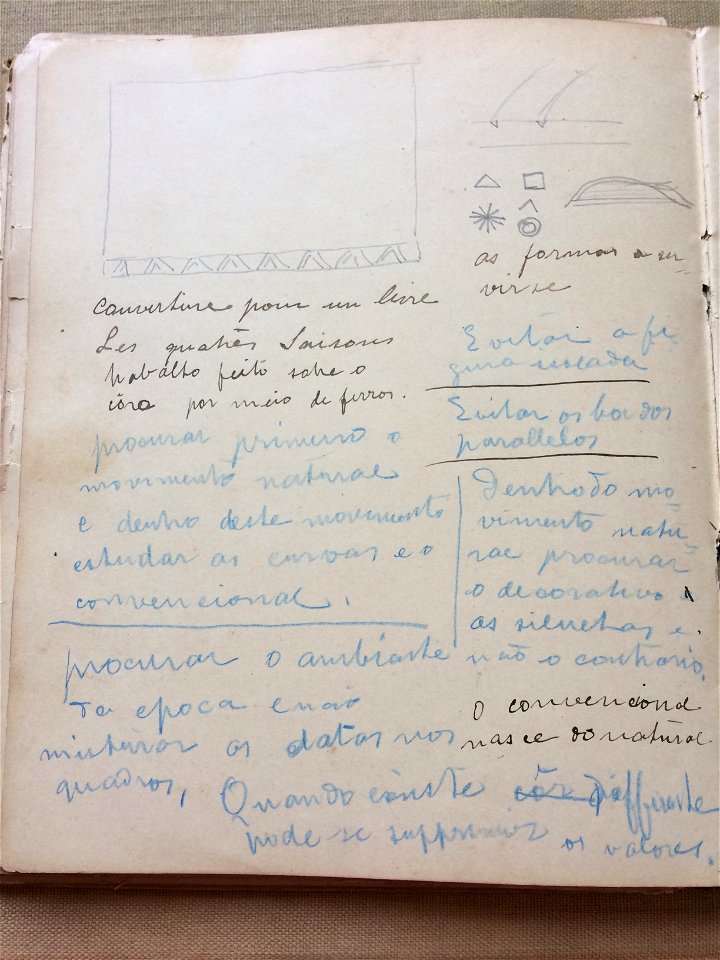 as formas a ser-
vir se
couverture pour un livre
Les quatres Saisons
trabalho feito sobre o
côro por meio de ferros.
Evitar a fi-
gura isolada
Evitar os bordos
parallelos
procurar primeiro o
movimento natural
e dentro deste movimento
estudar as curvas e o
convencional.
Dentro do mo-
vimento natu-
ral procurar
o decorativo e
as siluetas e
não o contrario.
procurar o ambiente
da epoca e não
misturar as datas nos
quadros,
O convencional
nasce do natural.
Quando existe côr differente
pode se supprimir os valores.